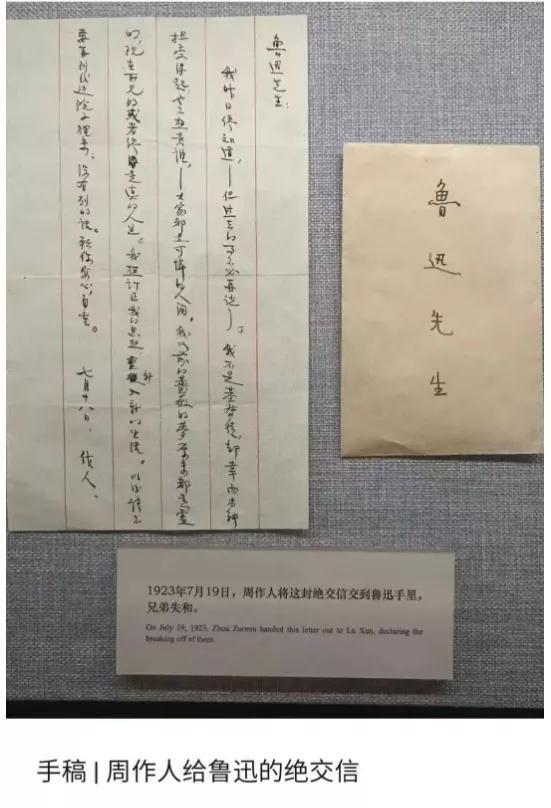 魯迅先生：
我昨日纔知道，——但過去的事不必再說了。我不是基督徒，却幸而尚能
担受得起，也不想責誰，——大家都是可憐的人間。我以前的薔薇的夢原來都是虚
幻，現在所見的或者纔是真的人生。我想訂正我的思想，重新入新的生活。以後請不
要再到後邊院子裡來，沒有別的話。願你安心，自重。 七月十八日，作人。
魯迅先生
1923年7月19日，周作人将这封绝交信交到鲁迅手里，
兄弟失和。
On July 19, 1923, Zhou Zuoren handed this letter out to Lu Xun, declaring the
breaking off of them.
手稿 | 周作人给鲁迅的绝交信